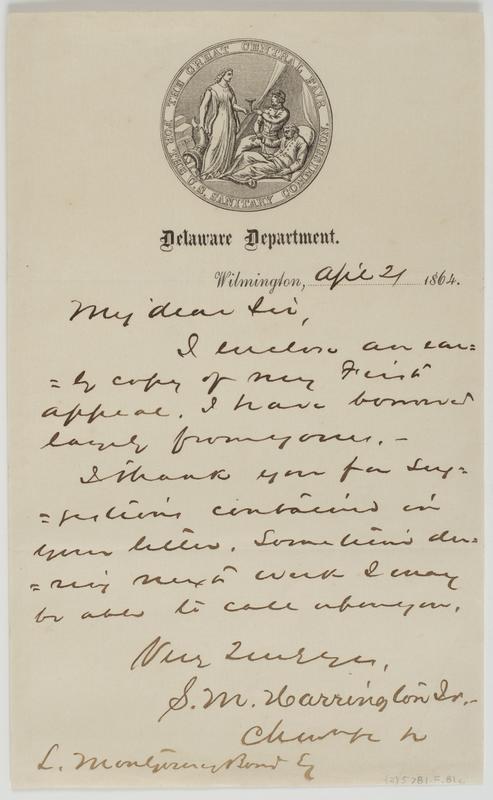 THE GREAT CENTRAL FAIR
FOR THE U.S. SANITARY COMMISSION.
Delaware Department.
Wilmington, April 21 1864.
My dear Sir,
I enclose an ear=
=ly copy of my First
appeal. I have borrowed
largely from yours. -
I thank you for sug=
=gestions contained in
your letter. Sometime du=
=ring next week I may
be able to call upon you.
Very Truly Yrs,
S. M. Harrington Jr. -
L. Montgomery Bond Esq